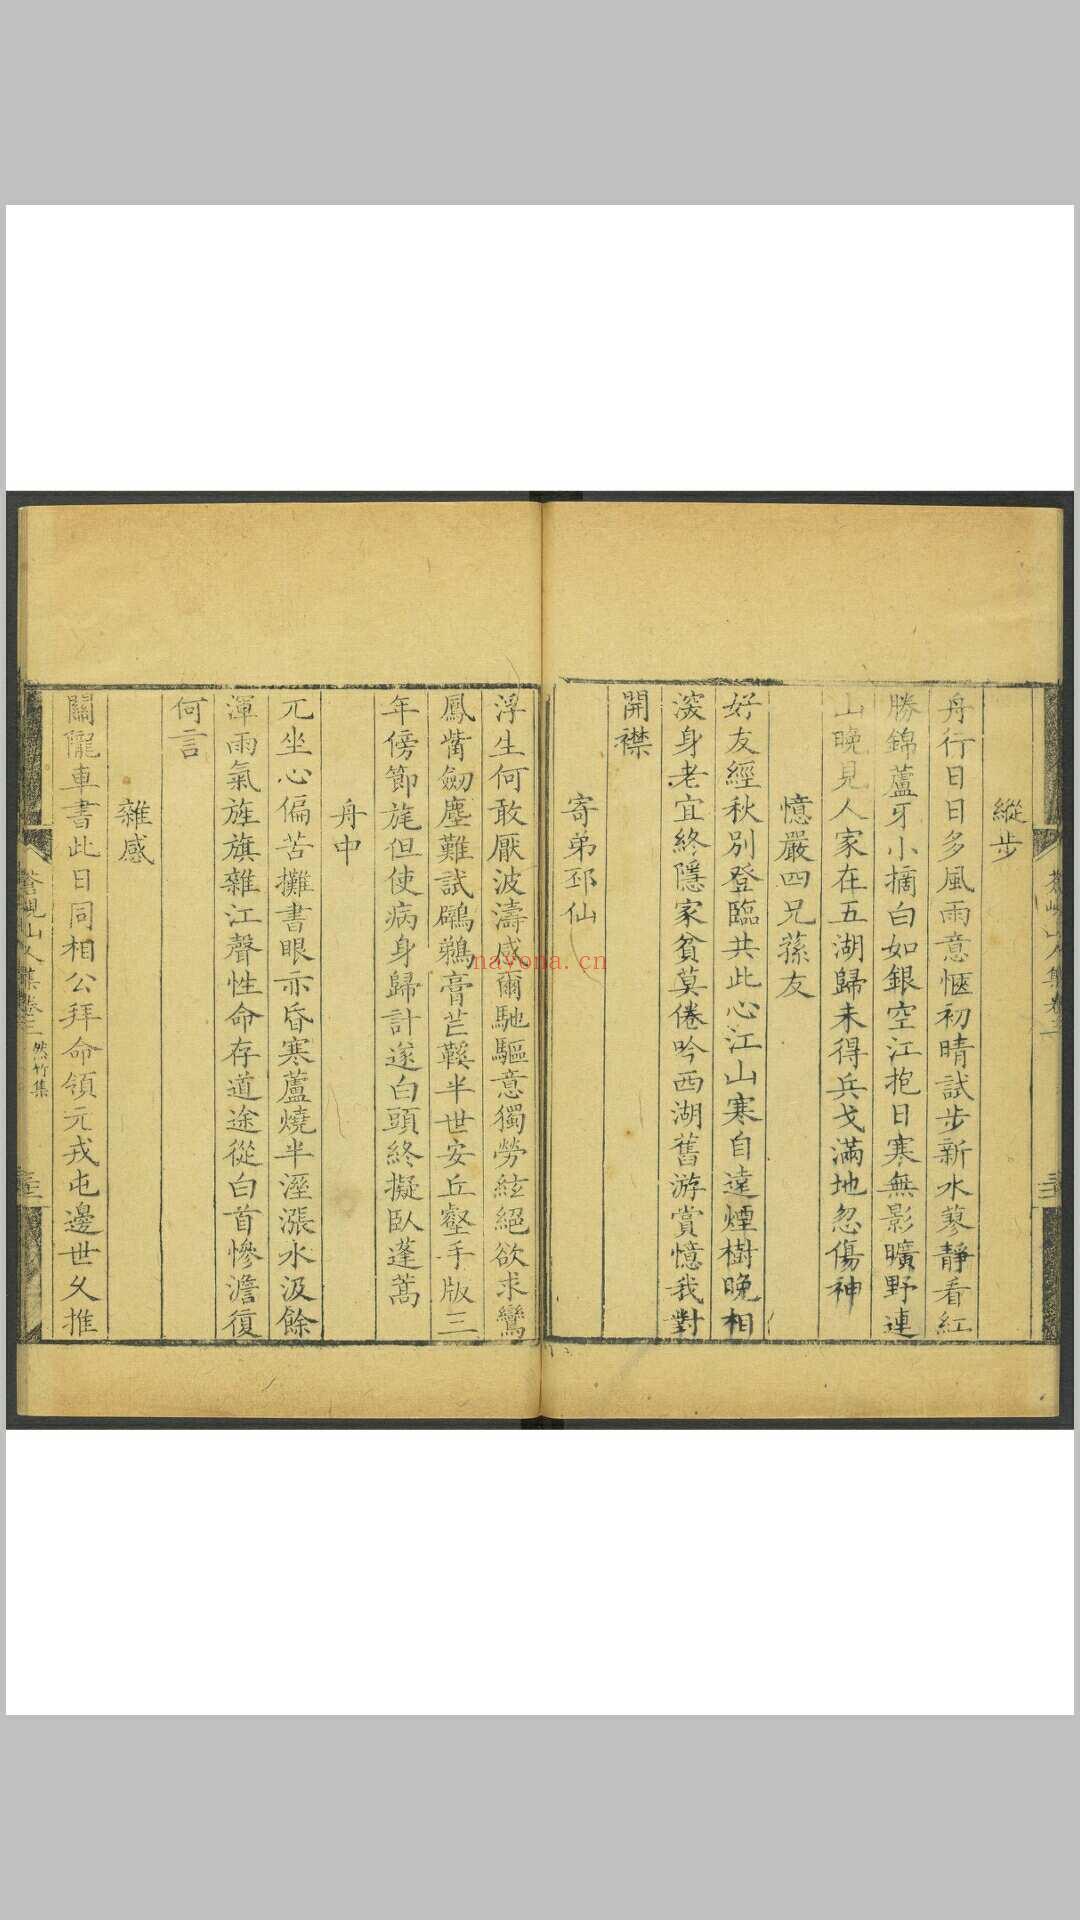 縱步
舟行日日多風雨意愜初晴試步新水蓼靜看紅
勝錦蘆牙小摘白如銀空江抱日寒無影曠野連
山晚見人家在五湖歸未得兵戈滿地忽傷神
憶嚴四兄蓀友
好友經秋別登臨共此心江山寒自遠煙樹晚相
深身老宜終隱家貧莫倦吟西湖舊游賞憶我對
開襟
寄弟邳仙
浮生何敢厭波濤感爾馳驅意獨勞絃絕欲求鸞
鳳觜劒塵難試鸊鵜膏芒鞵半世安丘壑手版三
年傍節旄但使病身歸計遂白頭終擬臥蓬蒿
舟中
兀坐心偏苦攤書眼亦昏寒蘆燒半溼漲水汲餘
渾雨氣旌旗雜江聲性命存道途從白首慘澹復
何言
雜感
關隴車書此日同相公拜命領元戎屯邊世父推
蒼峴山人集卷三
然竹集
nayona.cn